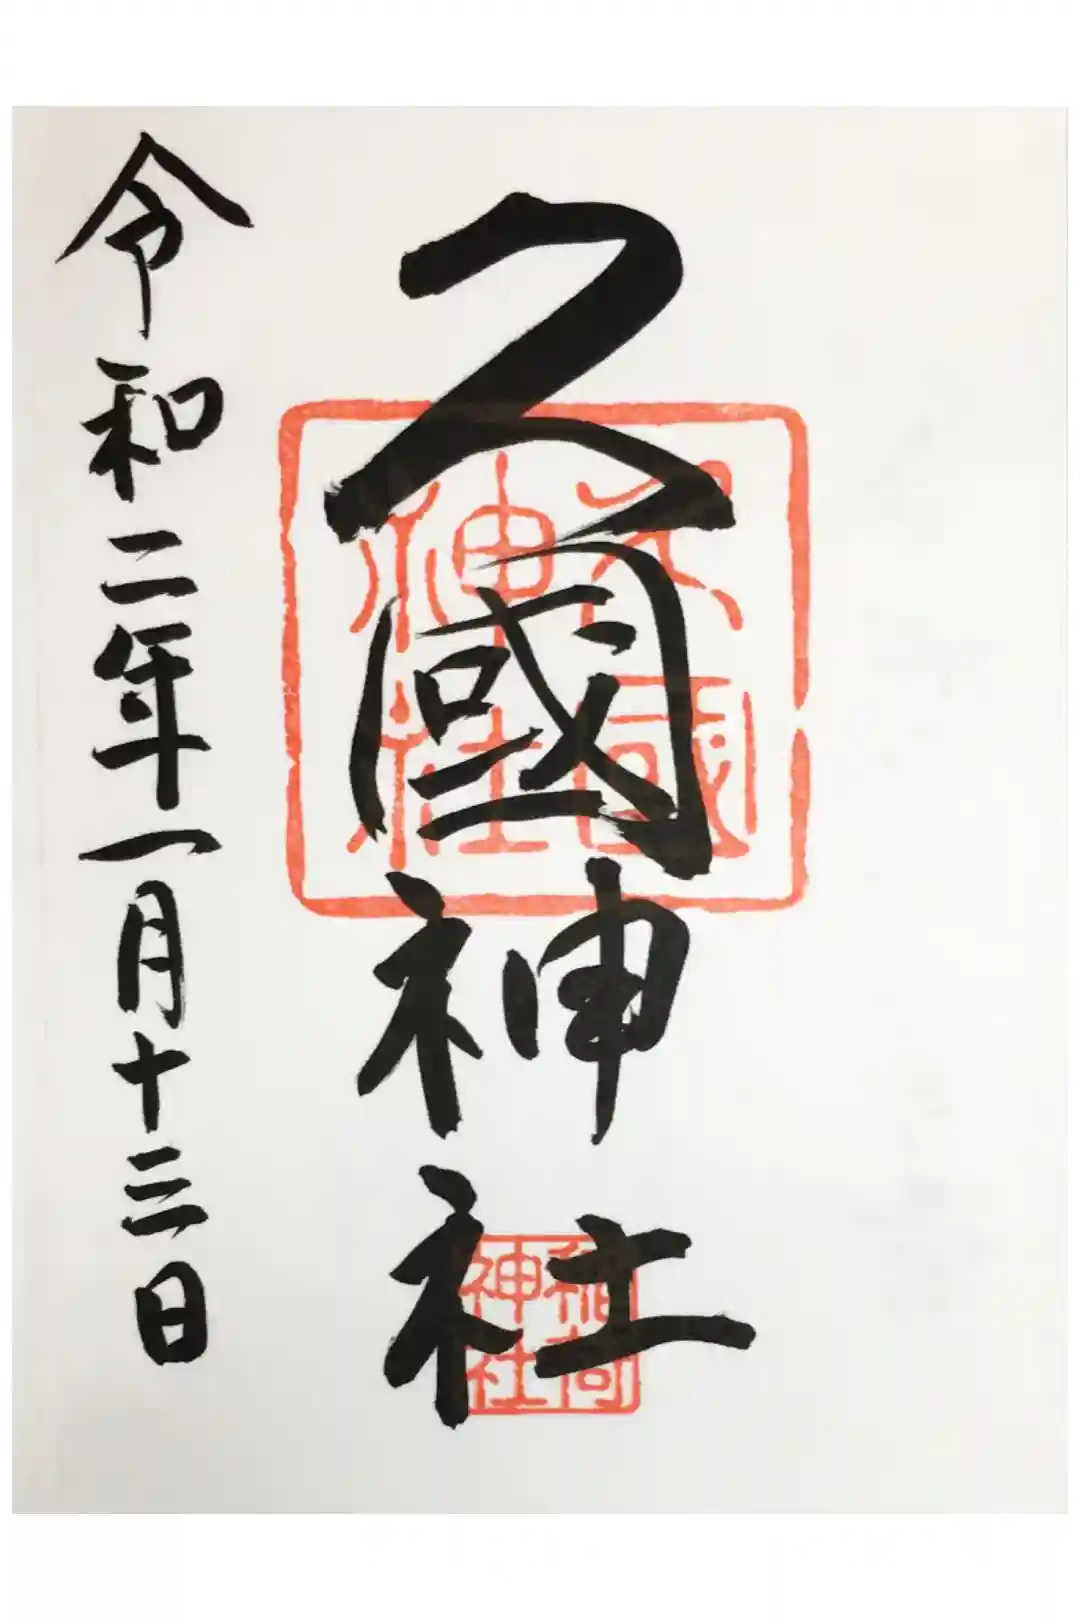 久國神社
久国神社
稲荷神社
令和二年一月十三日